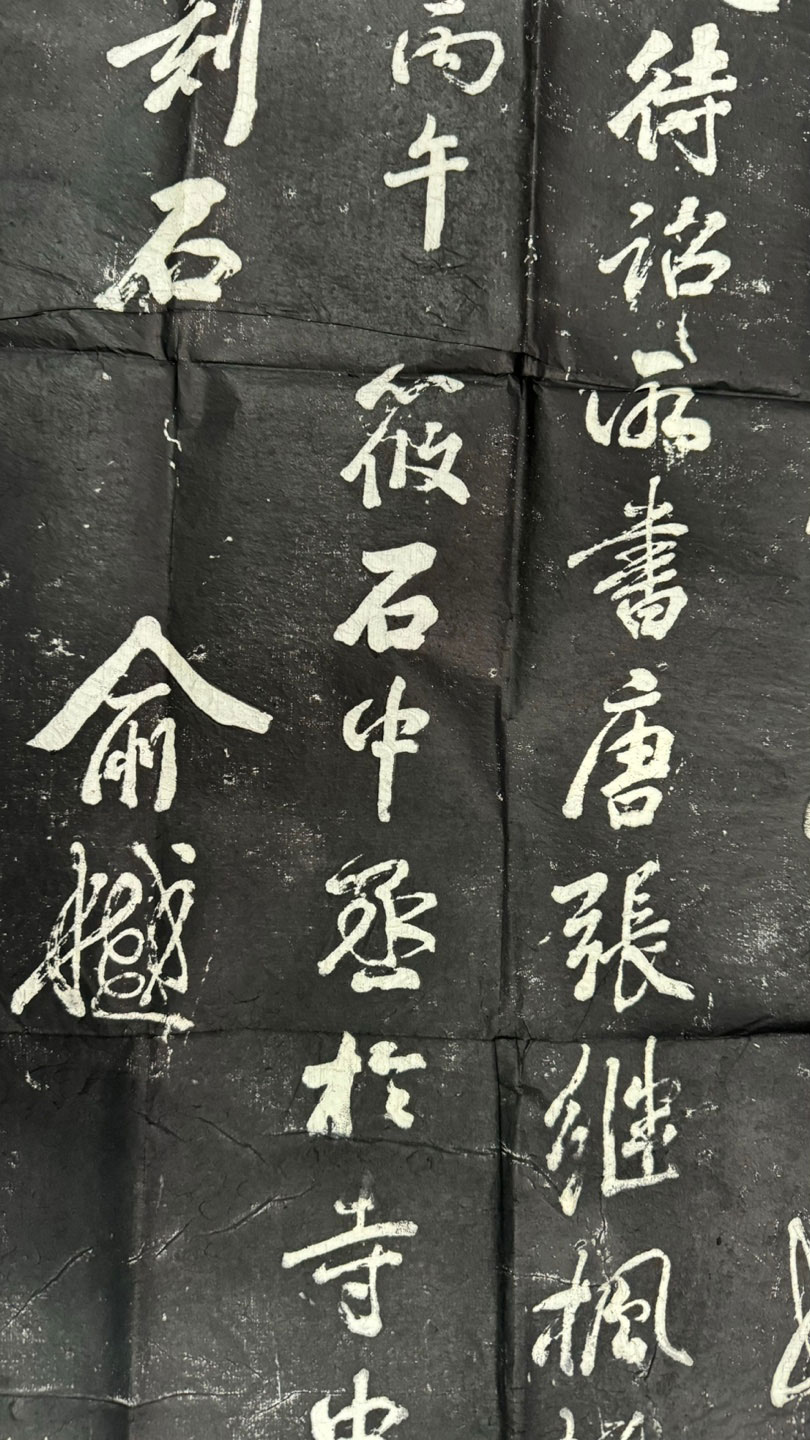 待詔所書唐張継楓
丙午 筱石中丞於寺中
刻石 俞樾